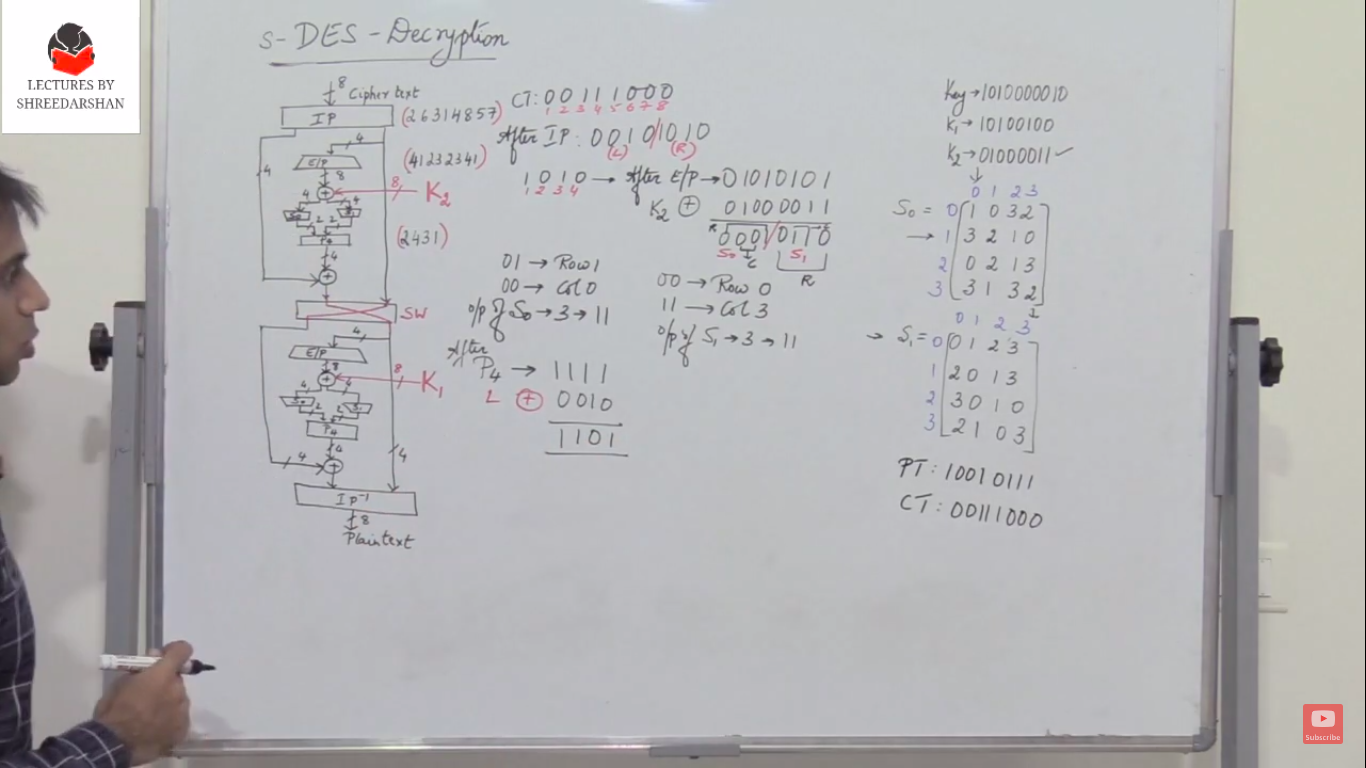 LECTURES BY
SHREEDARSHAN
S-DES-Decryption
8 Cipher text
IP (26314857)
4
4
E/P (41232341)
8
8 K2
4 4
S0 S1
2 2
P4 (2431)
4
SW
4
E/P
8
8 K1
4 4
S0 S1
2 2
P4
4
4
4
IP-1
8
Plaintext
CT: 00111000
1 2 3 4 5 6 7 8
After IP: 0010/1010
(L) (R)
1010 → After E/P → 01010101
1 2 3 4
K2 ⊕ 01000011
R
000/0110
S0 C S1
R
01 → Row 1
00 → Col 0
o/p of S0 → 3 → 11
00 → Row 0
11 → Col 3
o/p of S1 → 3 → 11
After
P4 → 1111
L ⊕ 0010
1101
Key → 1010000010
K1 → 10100100
K2 → 01000011 ✓
0 1 2 3
S0 = 0 1 0 3 2
→ 1 3 2 1 0
2 0 2 1 3
3 3 1 3 2
0 1 2 3
→ S1 = 0 0 1 2 3
1 2 0 1 3
2 3 0 1 0
3 2 1 0 3
PT: 10010111
CT: 00111000
Subscribe